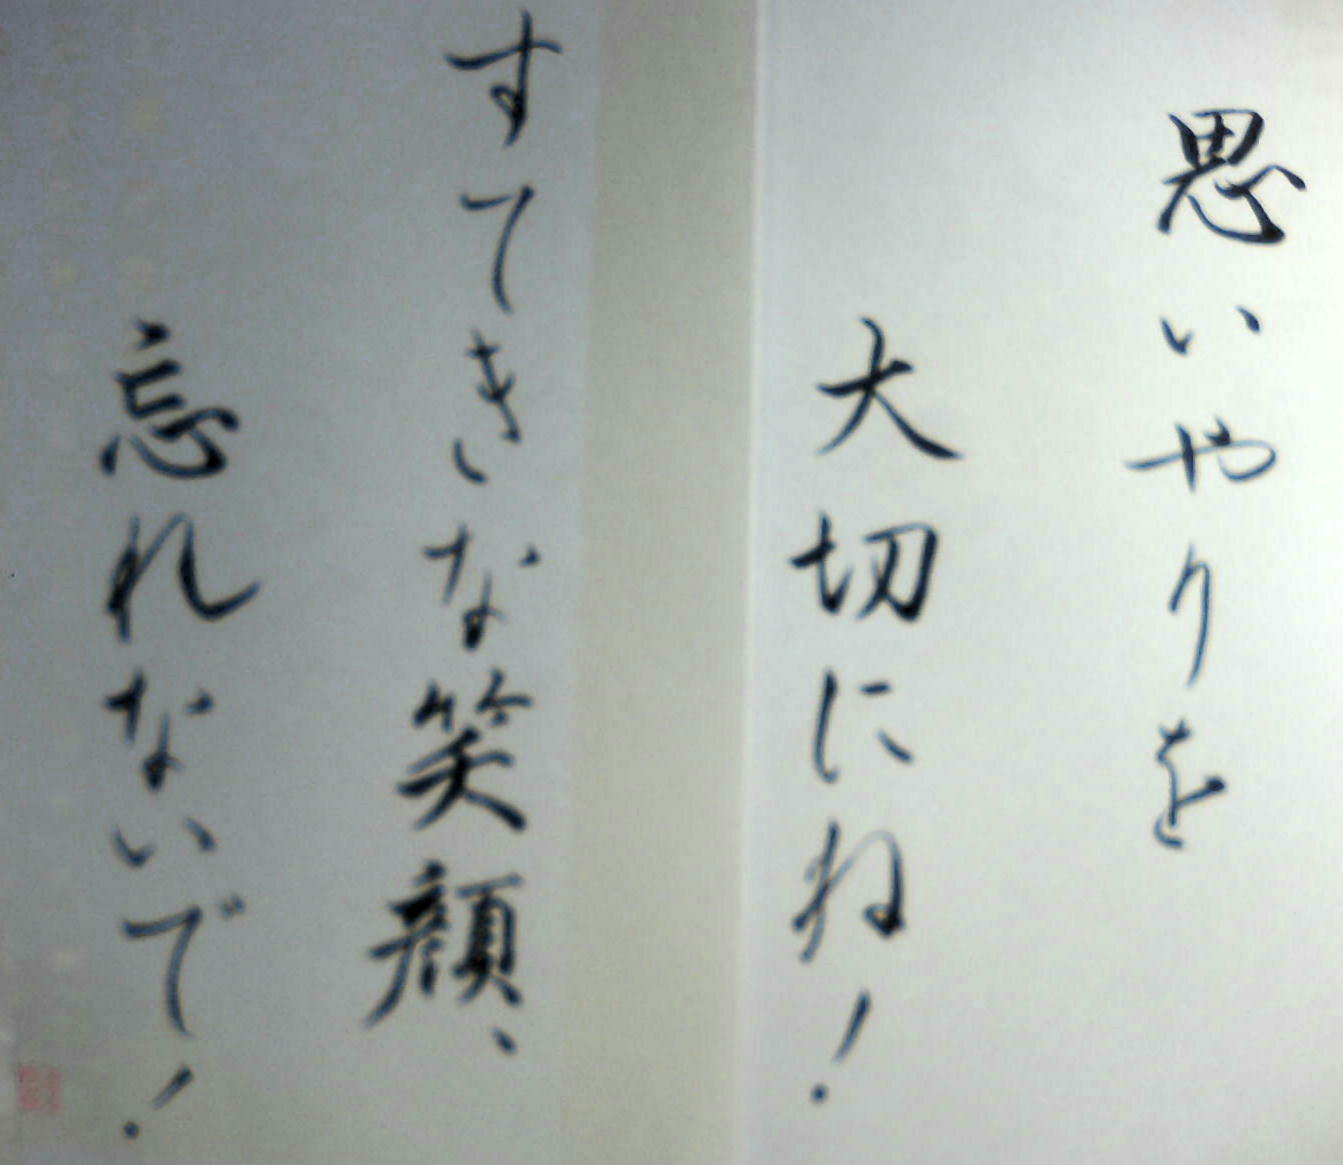 思いやりを
大切にね!
すてきな笑顔、
忘れないで!